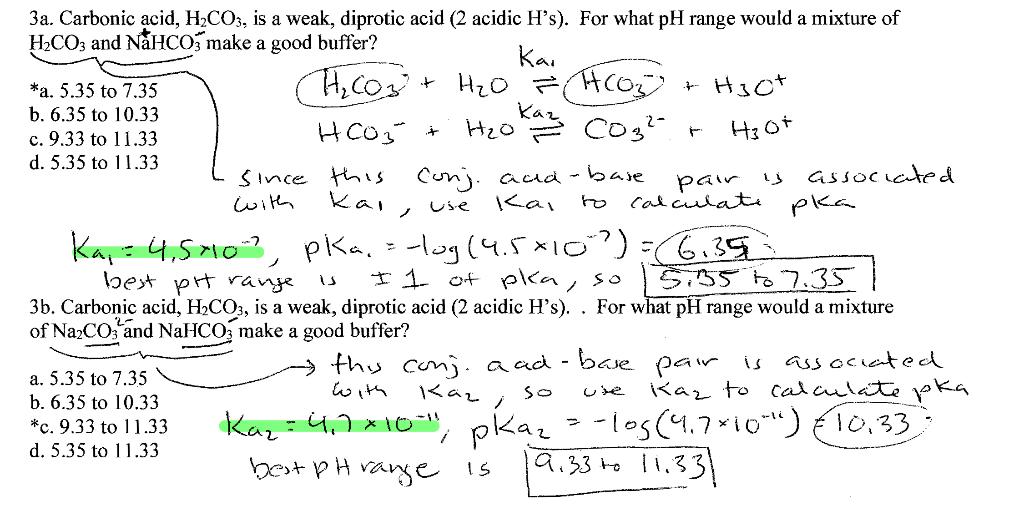 3a. Carbonic acid, H₂CO₃, is a weak, diprotic acid (2 acidic H's). For what pH range would a mixture of
H₂CO₃ and Na⁺HCO₃⁻ make a good buffer?
*a. 5.35 to 7.35
b. 6.35 to 10.33
c. 9.33 to 11.33
d. 5.35 to 11.33
H₂CO₃ + H₂O ⇌ HCO₃⁻ + H₃O⁺
Ka₁
HCO₃⁻ + H₂O ⇌ CO₃²⁻ + H₃O⁺
Ka₂
Since this conj. acid-base pair is associated
with Ka₁, use Ka₁ to calculate pKa
Ka₁ = 4.5×10⁻⁷, pKa₁ = -log(4.5×10⁻⁷) = 6.35
best pH range is ± 1 of pKa, so 5.35 to 7.35
3b. Carbonic acid, H₂CO₃, is a weak, diprotic acid (2 acidic H's). . For what pH range would a mixture
of Na₂CO₃²⁻ and NaHCO₃⁻ make a good buffer?
a. 5.35 to 7.35
b. 6.35 to 10.33
*c. 9.33 to 11.33
d. 5.35 to 11.33
→ this conj. acid-base pair is associated
with Ka₂, so use Ka₂ to calculate pKa
Ka₂ = 4.7×10⁻¹¹, pKa₂ = -log(4.7×10⁻¹¹) = 10.33
best pH range is 9.33 to 11.33